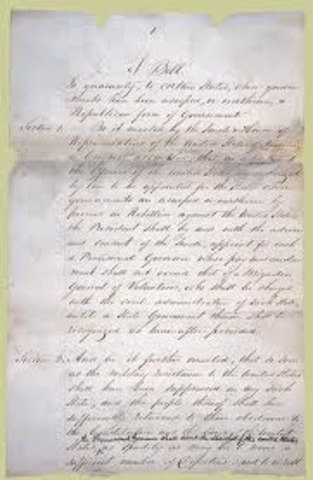 A Bill
To guaranty, to certain States, whose govern-
ments have been usurped or overthrown, a
Republican form of Government.
Section 1. Be it enacted by the Senate & House of
Representatives of the United States of America
in Congress
by law to be appointed for the States whose
governments are usurped or overthrown by
persons in Rebellion against the United States
the President shall by and with the advice
and consent of the Senate, appoint for each
a Provisional Governor whose pay and emolu-
ments shall not exceed that of a Brigadier
General of Volunteers, who shall be charged
with the civil administration of such State
until a State Government therein shall be
recognized as hereinafter provided.
Section 2. And be it further enacted, that so soon
as the military resistance to the United States
shall have been suppressed in any such
State, and the people thereof shall have
sufficiently returned to their obedience to
the Constitution and the laws of the United
the Provisional Governor shall direct the Marshal of the United States
States
sufficient number of Deputies, and to enroll